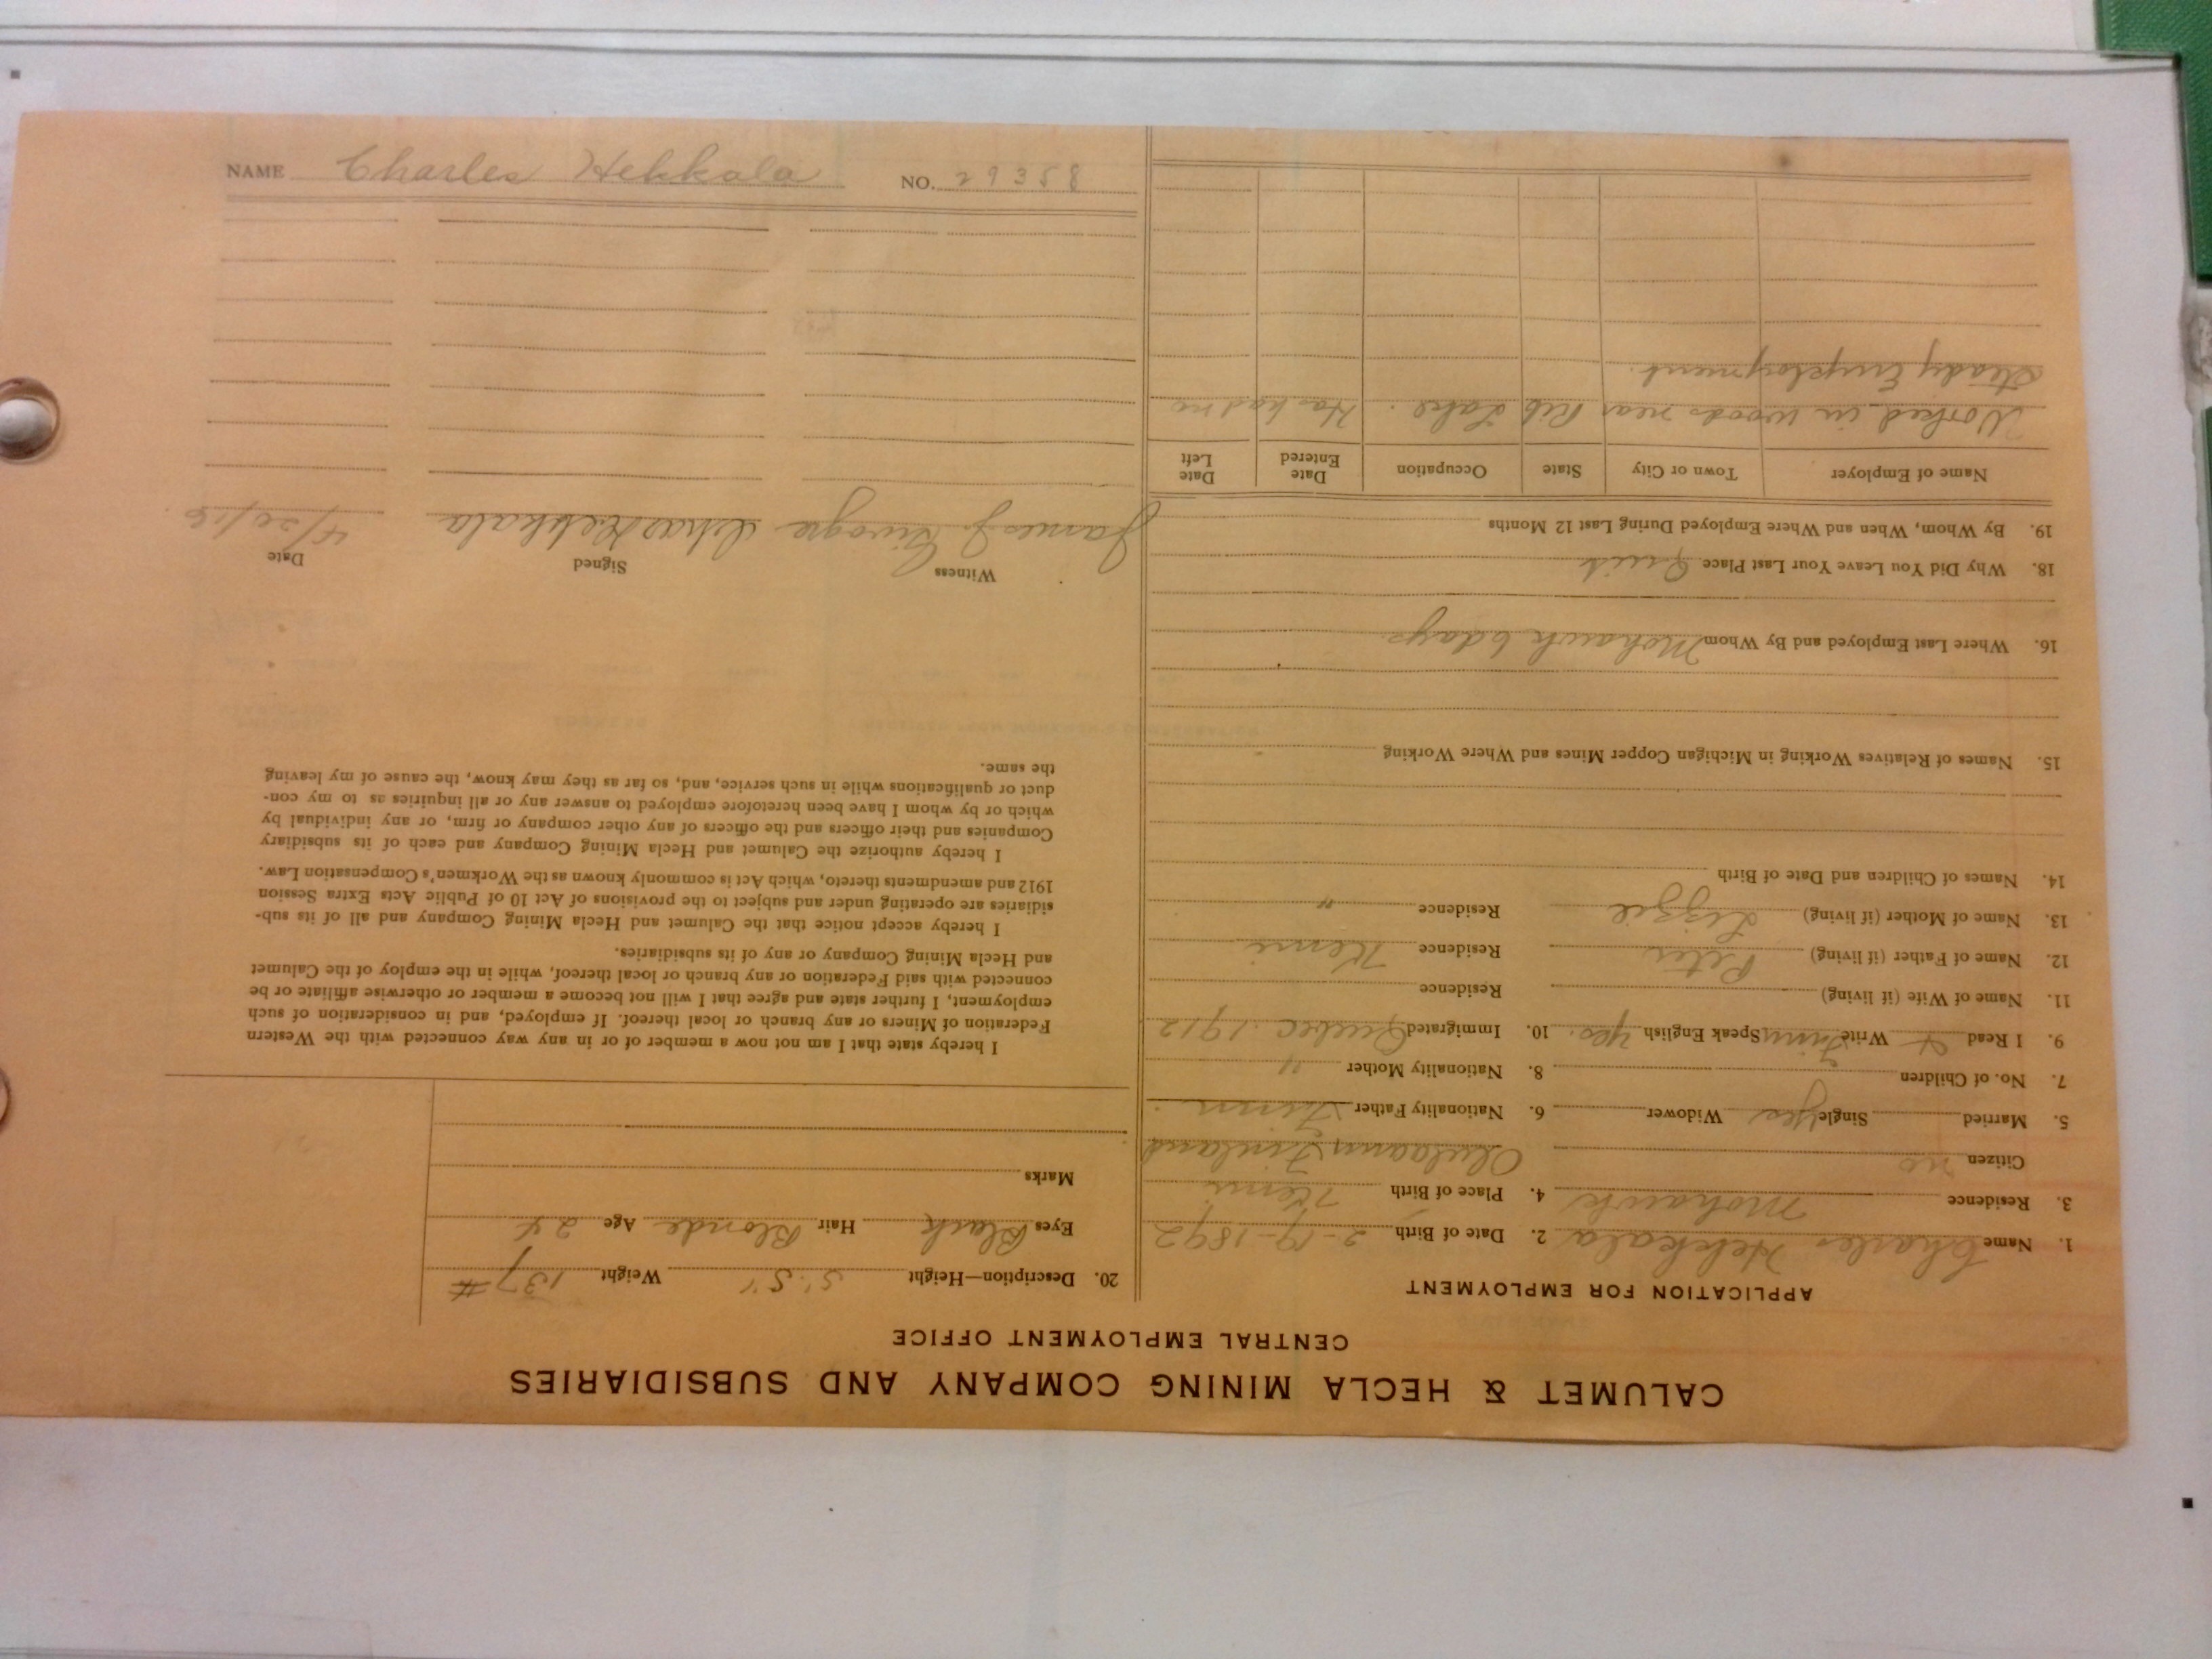 CALUMET & HECLA MINING COMPANY AND SUBSIDIARIES
CENTRAL EMPLOYMENT OFFICE
APPLICATION FOR EMPLOYMENT
1. Name Charles Hekkala 2. Date of Birth 2-19-1892
3. Residence Mohawk 4. Place of Birth Kemi
Citizen no Oulaann, Finland
5. Married Single yes Widower 6. Nationality Father Finn
7. No. of Children 8. Nationality Mother "
9. I Read + Write Finn Speak English yes. 10. Immigrated Quebec 1912
11. Name of Wife (if living) Residence
12. Name of Father (if living) Peter Residence Kemi
13. Name of Mother (if living) Lizzie Residence "
14. Names of Children and Date of Birth
15. Names of Relatives Working in Michigan Copper Mines and Where Working
16. Where Last Employed and By Whom Mohawk 6 days
18. Why Did You Leave Your Last Place Quit
19. By Whom, When and Where Employed During Last 12 Months
Name of Employer Town or City State Occupation Date Entered Date Left
Worked in woods near Rib Lake. Has had no
Steady Employment.
20. Description—Height 5' 5" Weight 137 #
Eyes Black Hair Blonde Age 24
Marks
I hereby state that I am not now a member of or in any way connected with the Western
Federation of Miners or any branch or local thereof. If employed, and in consideration of such
employment, I further state and agree that I will not become a member or otherwise affiliate or be
connected with said Federation or any branch or local thereof, while in the employ of the Calumet
and Hecla Mining Company or any of its subsidiaries.
I hereby accept notice that the Calumet and Hecla Mining Company and all of its sub-
sidiaries are operating under and subject to the provisions of Act 10 of Public Acts Extra Session
1912 and amendments thereto, which Act is commonly known as the Workmen's Compensation Law.
I hereby authorize the Calumet and Hecla Mining Company and each of its subsidiary
Companies and their officers and the officers of any other company or firm, or any individual by
which or by whom I have been heretofore employed to answer any or all inquiries as to my con-
duct or qualifications while in such service, and, so far as they may know, the cause of my leaving
the same.
Witness Signed Date
James J. Chas Hekkala 4/20/16
NAME Charles Hekkala NO. 29358